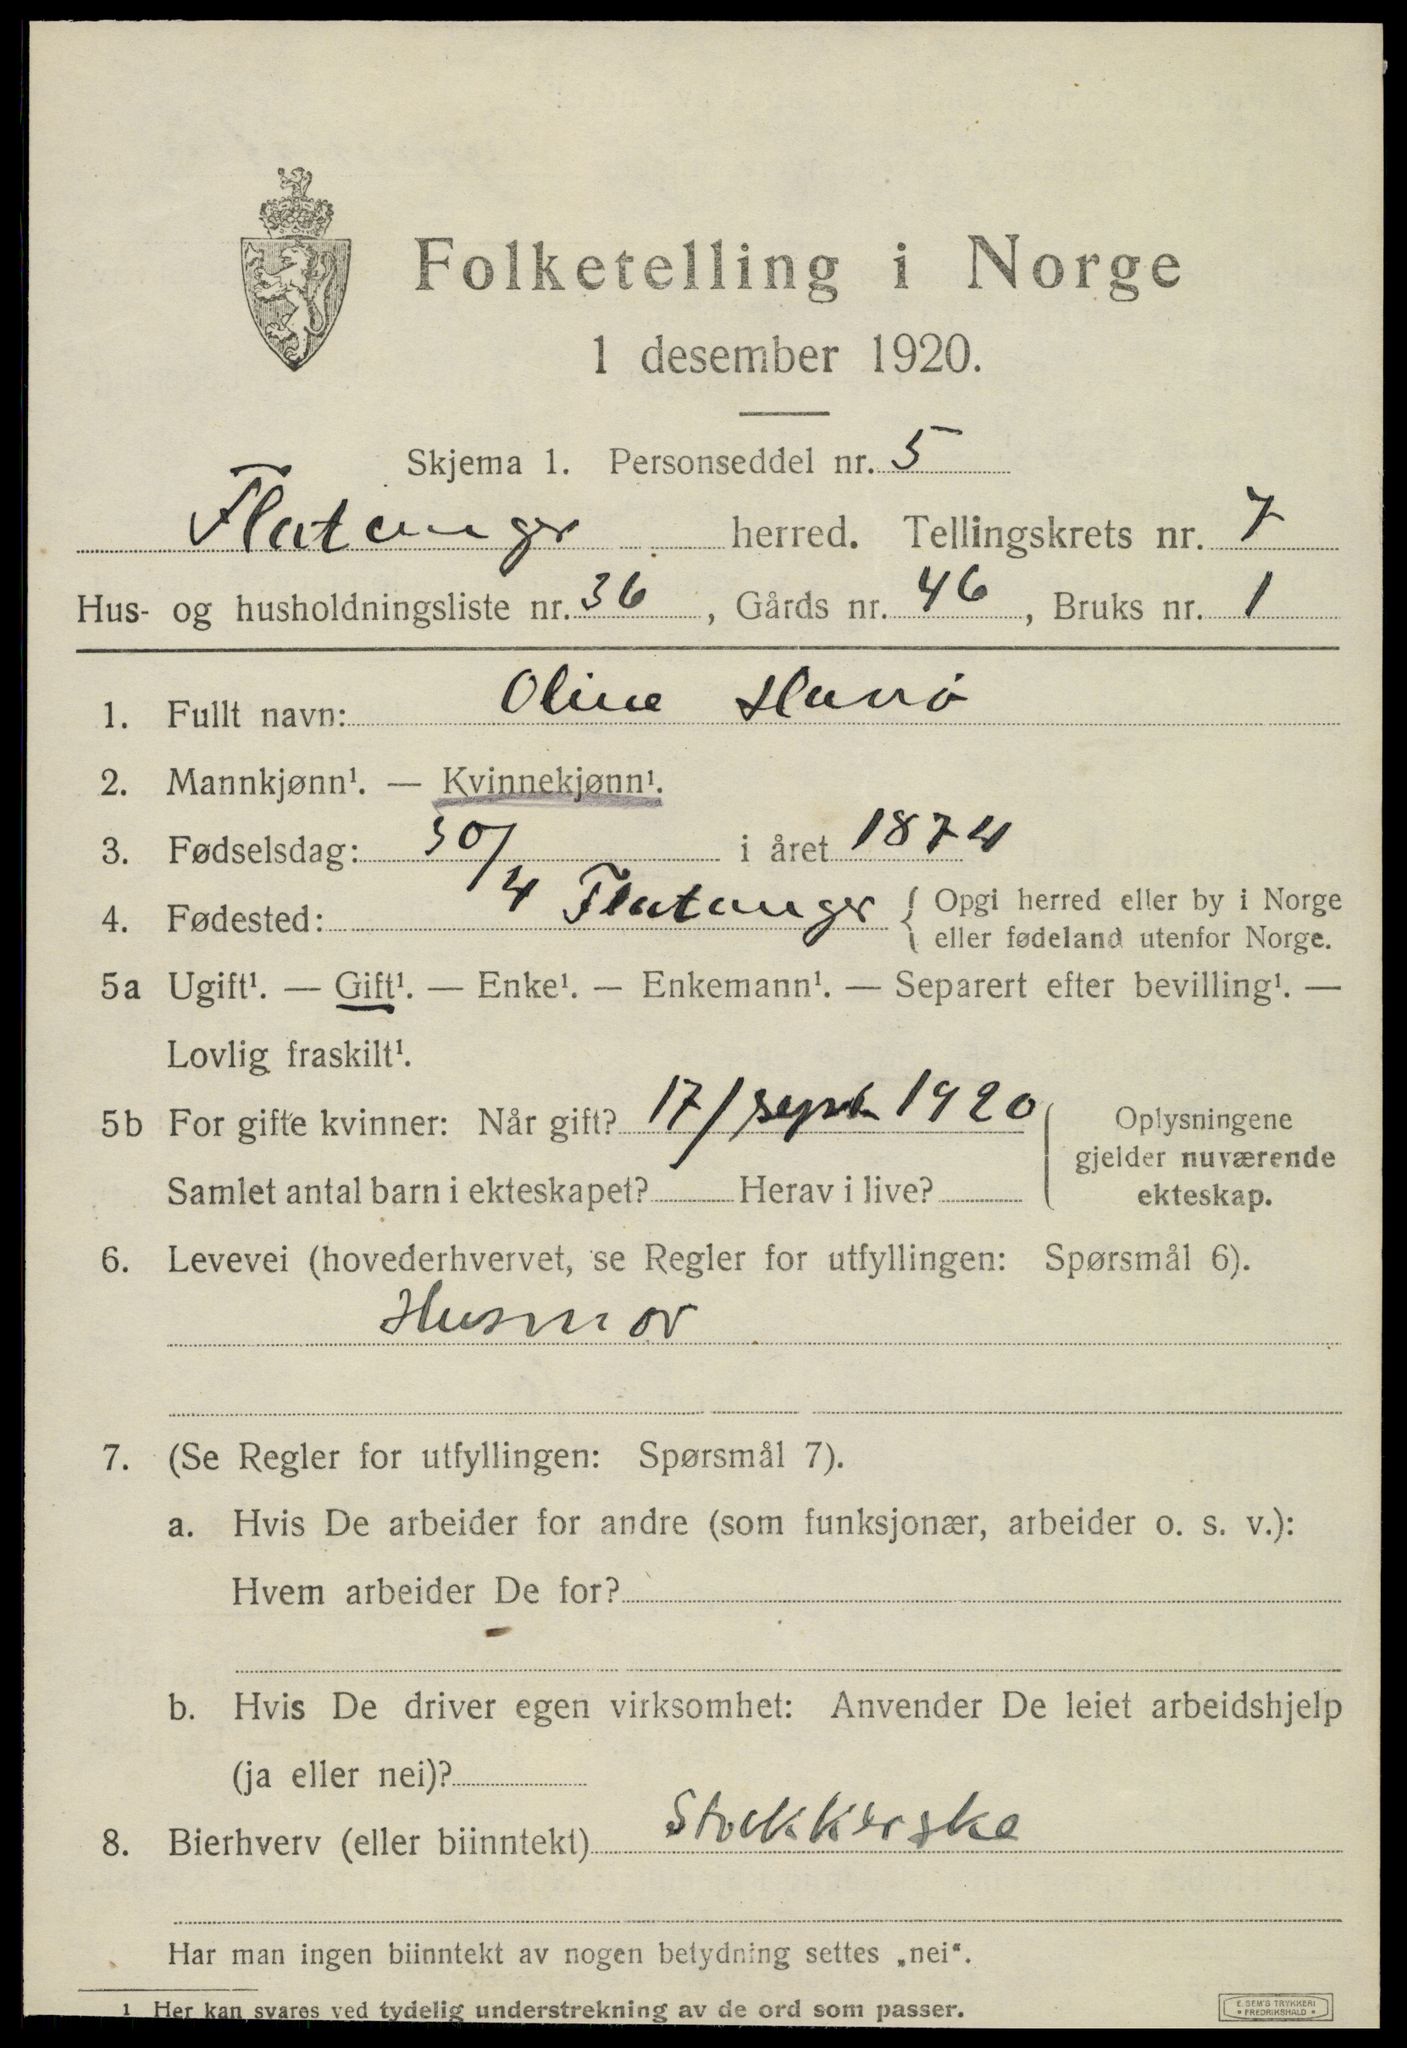 Folketelling i Norge
1 desember 1920.
Skjema 1. Personseddel nr. 5
Flatanger herred. Tellingskrets nr. 7
Hus- og husholdningsliste nr. 36, Gårds nr. 46, Bruks nr. 1
1. Fullt navn: Oline
2. Mannkjønn¹. — Kvinnekjønn¹.
3. Fødselsdag: 30/4 i året 1874
4. Fødested: Flatanger { Opgi herred eller by i Norge
eller fødeland utenfor Norge.
5a Ugift¹. — Gift¹. — Enke¹. — Enkemann¹. — Separert efter bevilling¹. —
Lovlig fraskilt¹.
5b For gifte kvinner: Når gift? 17/sept 1920
Samlet antal barn i ekteskapet? Herav i live?
Oplysningene
gjelder nuværende
ekteskap.
6. Levevei (hovederhvervet, se Regler for utfyllingen: Spørsmål 6).
Husmor
7. (Se Regler for utfyllingen: Spørsmål 7).
a. Hvis De arbeider for andre (som funksjonær, arbeider o. s. v.):
Hvem arbeider De for?
b. Hvis De driver egen virksomhet: Anvender De leiet arbeidshjelp
(ja eller nei)?
8. Bierhverv (eller biinntekt)
Har man ingen biinntekt av nogen betydning settes „nei“.
¹ Her kan svares ved tydelig understrekning av de ord som passer.
E. SEM'S TRYKKERI
• FREDRIKSHALD •